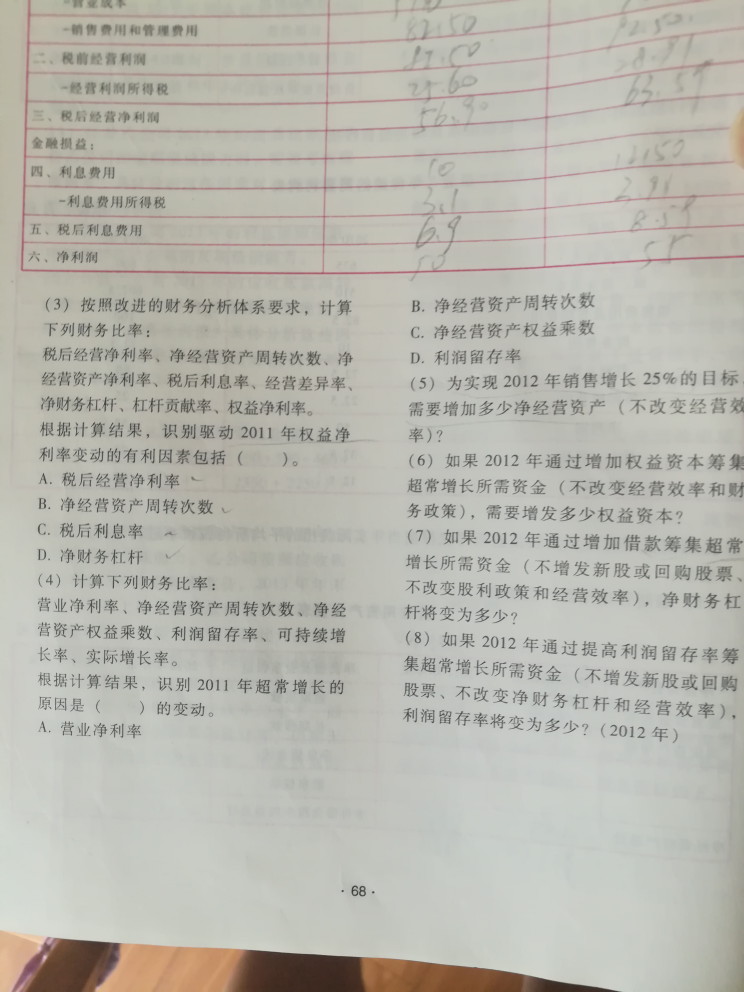 -营业成本
-销售费用和管理费用 82.50
二、税前经营利润
-经营利润所得税 25.60 63.59
三、税后经营净利润 56.90
金融损益：
四、利息费用 10 12.50
-利息费用所得税 3.1 3.91
五、税后利息费用 6.9 8.59
六、净利润 50 55
（3）按照改进的财务分析体系要求，计算
下列财务比率：
税后经营净利率、净经营资产周转次数、净
经营资产净利率、税后利息率、经营差异率、
净财务杠杆、杠杆贡献率、权益净利率。
根据计算结果，识别驱动 2011 年权益净
利率变动的有利因素包括（ ）。
A. 税后经营净利率
B. 净经营资产周转次数
C. 税后利息率
D. 净财务杠杆
（4）计算下列财务比率：
营业净利率、净经营资产周转次数、净经
营资产权益乘数、利润留存率、可持续增
长率、实际增长率。
根据计算结果，识别 2011 年超常增长的
原因是（ ）的变动。
A. 营业净利率
B. 净经营资产周转次数
C. 净经营资产权益乘数
D. 利润留存率
（5）为实现 2012 年销售增长 25%的目标，
需要增加多少净经营资产（不改变经营效
率）？
（6）如果 2012 年通过增加权益资本筹集
超常增长所需资金（不改变经营效率和财
务政策），需要增发多少权益资本？
（7）如果 2012 年通过增加借款筹集超常
增长所需资金（不增发新股或回购股票、
不改变股利政策和经营效率），净财务杠
杆将变为多少？
（8）如果 2012 年通过提高利润留存率筹
集超常增长所需资金（不增发新股或回购
股票、不改变净财务杠杆和经营效率），
利润留存率将变为多少？（2012 年）
· 68 ·